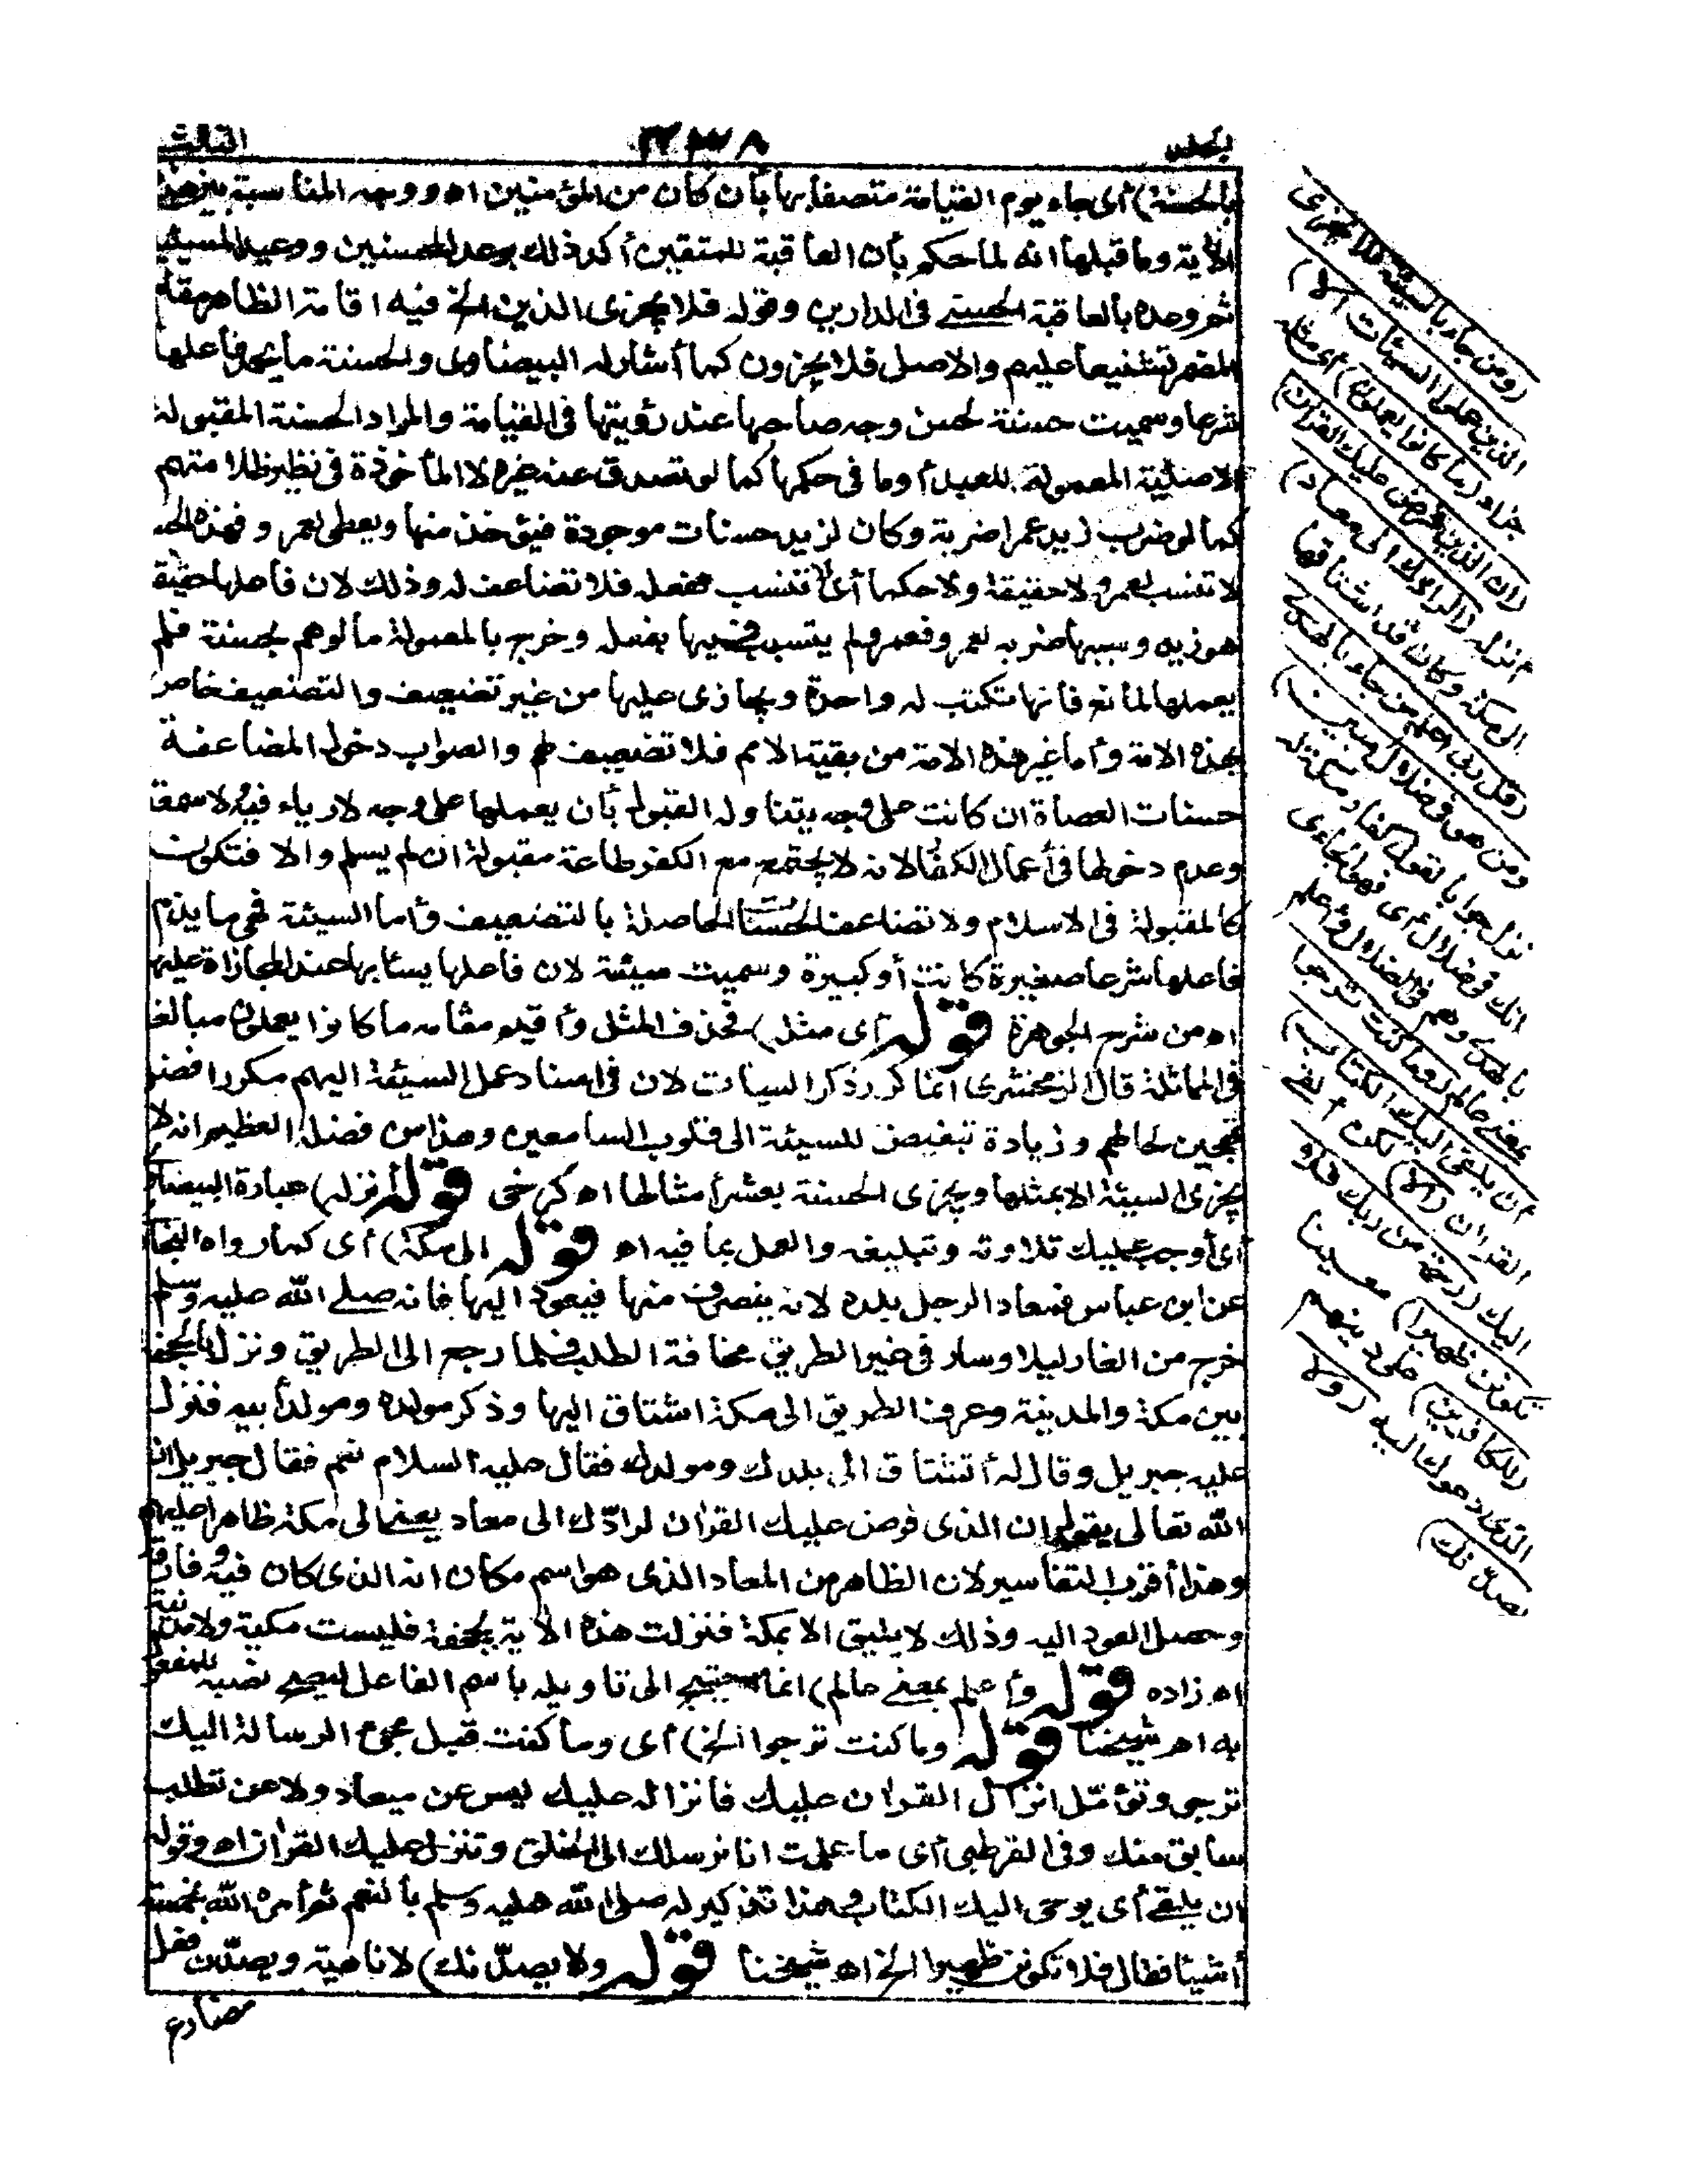 الثالث
بالحسنة) أى جاء يوم القيامة متصفا بها بأن كان من المؤمنين اه ووجه المناسبة بين هذه
الآية وما قبلها انه لما حكم بأن العاقبة للمتقين أكد ذلك بوعد المحسنين ووعيد المسيئين
ثم وعده بالعاقبة الحسنى فى الدارين وقوله فلا يجزى الذين الخ فيه اقامة الظاهر مقام
المضمر تشنيعا عليهم والاصل فلا يجزون كما أشار له البيضاوى والحسنة ما يحمد فاعلها
شرعا وسميت حسنة لحسن وجه صاحبها عند رؤيتها فى القيامة والمراد الحسنة المقبولة
الاصلية المعمولة للعبد أو ما فى حكمها كما لو تصدق عنه غيره لا المأخوذة فى نظير ظلامتهم
كما لو ضرب زيد عمرا ضربة وكان لزيد حسنات موجودة فيؤخذ منها ويعطى لعمرو فهذه
لا تنسب لعمرو لا حقيقة ولا حكما أى لا تنسب لفعله فلا تضاعف له وذلك لان فاعلها حقيقة
هو زيد وسببها ضربه لعمرو فعمرو لم يتسبب فيها بفعل وخرج بالمعمولة ما لو هم بحسنة فلم
يعملها لمانع فانها تكتب له واحدة ويجازى عليها من غير تضعيف والتضعيف خاص
بهذه الامة وأما غير هذه الامة من بقية الامم فلا تضعيف لهم والصواب دخول المضاعفة
حسنات العصاة ان كانت على وجه يتناوله القبول بأن يعملها على وجه لا رياء فيه ولا سمعة
وعدم دخولها فى أعمال الكفار لانه لا يجتمع مع الكفر طاعة مقبولة ان لم يسلم والا فتكون
كالمقبولة فى الاسلام ولا تضاعف الحسنات الحاصلة بالتضعيف وأما السيئة فهى ما يذم
فاعلها شرعا صغيرة كانت أو كبيرة وسميت سيئة لان فاعلها يساء بها عند المجازاة عليها
اه من شرح الجوهرة قوله أى مثل) فحذف المثل وأقيم مقامه ما كانوا يعملون مبالغة
فى المماثلة قال الزمخشرى انما كرر ذكر السيات لان فى اسناد عمل السيئة اليهم مكررا فضل
تهجين لحالهم وزيادة تبغيض للسيئة الى قلوب السامعين وهذا من فضله العظيم انه لا
يجزى السيئة الا بمثلها ويجزى الحسنة بعشر أمثالها اه كرخى قوله أنزله) عبارة البيضاوى
أى أوجب عليك تلاوته وتبليغه والعمل بما فيه اه قوله الى مكة) أى كما رواه
عن ابن عباس فمعاد الرجل بلده لانه ينصرف منها فيعود اليها فانه صلى الله عليه وسلم
خرج من الغار ليلا وسار فى غير الطريق مخافة الطلب فلما رجع الى الطريق ونزل بالجحفة
بين مكة والمدينة وعرف الطريق الى مكة اشتاق اليها وذكر مولده ومولد أبيه فنزل
عليه جبريل وقال له أتشتاق الى بلدك ومولدك فقال عليه السلام نعم فقال جبريل ان
الله تعالى يقول ان الذى فرض عليك القرآن لرادّك الى معاد يعنى الى مكة ظاهرا عليهم
وهذا أقرب التفاسير لان الظاهر من المعاد الذى هو اسم مكان انه الذى كان فيه وفارقه
وحصل العود اليه وذلك لا يليق الا بمكة فنزلت هذه الآية بجحفة فليست مكية ولا مدنية
اه زاده قوله وأعلم بمعنى عالم) انما احتيج الى تأويله باسم الفاعل ليصح نصبه للمفعول
به اه شيخنا قوله وما كنت ترجوا الخ) أى وما كنت قبل مجىء الرسالة اليك
ترجى وتؤمّل انزال القرآن عليك فانزاله عليك ليس عن ميعاد ولا عن تطلب
سابق منك وفى القرطبى أى ما علمت انا نرسلك الى الخلق وتنزل عليك القرآن اه وقوله
ان يلقى أى يوحى اليك الكتاب فى هذا تذكير له صلى الله عليه وسلم بالنعم ثم أمره الله بخمسة
أشياء فقال فلا تكونن ظهيرا الخ اه شيخنا قوله ولا يصدّنك) لا ناهية ويصدّن فعل
مضارع
(ومن جاء بالسيئة فلا يجزى
الذين عملوا السيئات الا)
جزاء (ما كانوا يعملون) أى مثله
(ان الذى فرض عليك القرآن)
أنزله (لرادك الى معاد)
الى مكة وكان قد اشتاقها
(قل ربى أعلم من جاء بالهدى
ومن هو فى ضلال مبين)
نزل جوابا لقول كفار مكة له
انك فى ضلال أى فهو الجاءى
بالهدى وهم فى الضلال وأعلم
بمعنى عالم (وما كنت ترجوا
ان يلقى اليك الكتاب)
القرآن (الا) لكن ألقى
اليك (رحمة من ربك فلا
تكونن ظهيرا) معينا
(للكافرين) على دينهم
الذى دعوك اليه (ولا
يصدنك)